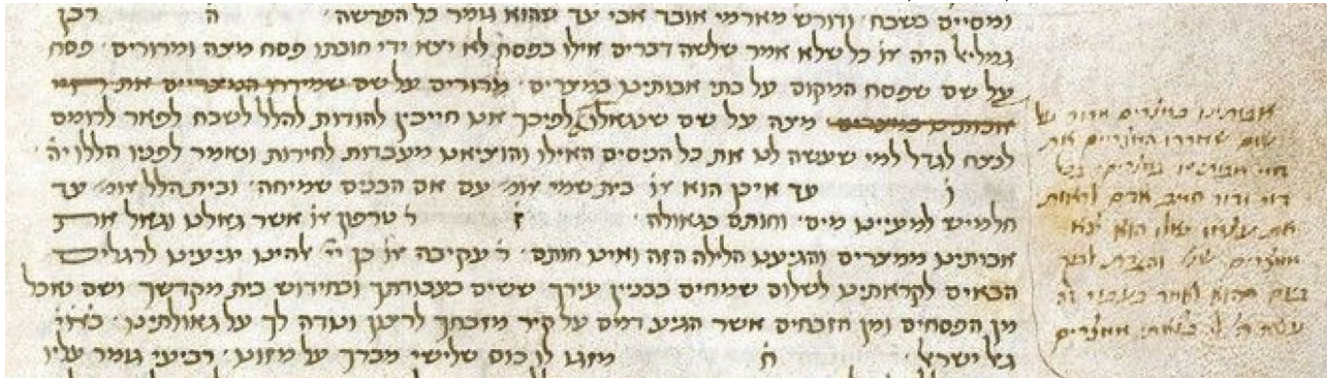 ומסיים בשבח · ודורש מארמי אובד אבי עד שהוא גומר כל הפרשה · ה רבן
גמליאל היה או' כל שלא אמר שלשה דברים אילו בפסח לא יצא ידי חובתו פסח מצה ומרורים · פסח
על שם שפסח המקום על בתי אבותינו במצרים · מרורים על שם שמיררו המצריים את חיי
אבותינו במצרים מצה על שם שנגאלו לפיכך אנו חייבין להודות להלל לשבח לפאר לרומם
לנצח לגדל למי שעשה לנו את כל הניסים האילו והוציאנו מעבדות לחירות ונאמר לפניו הללויה ·
ו עד איכן הוא או' בית שמי אומ' עד אם הבנים שמיחה · ובית הלל אומ' עד
חלמיש למעיינו מים · וחותם בגאולה · ז ר' טרפון או' אשר גאלנו וגאל את
אבותינו ממצרים והגיענו הלילה הזה ואינו חותם · ר' עקיבה או' כן יי' אלהינו יגיענו לרגלים
הבאים לקראתינו לשלום שמחים בבניין עירך ששים בעבודתך ובחידוש בית מקדשך ושם נאכל
מן הפסחים ומן הזבחים אשר הגיע דמם על קיר מזבחך לרצון ונודה לך על גאולתינו ·
גאל ישראל · ח מזגו לו כוס שלישי מברך על מזונו · רביעי גומר עליו
אבותינו במצרים מרור על
שום שמררו המצריים את
חיי אבותינו במצרים · בכל
דור ודור חייב אדם לראות
את עצמו כאלו הוא יצא
ממצרים שנ' והגדת לבנך
ביום ההוא לאמר בעבור זה
עשה ה' לי בצאתי ממצרים